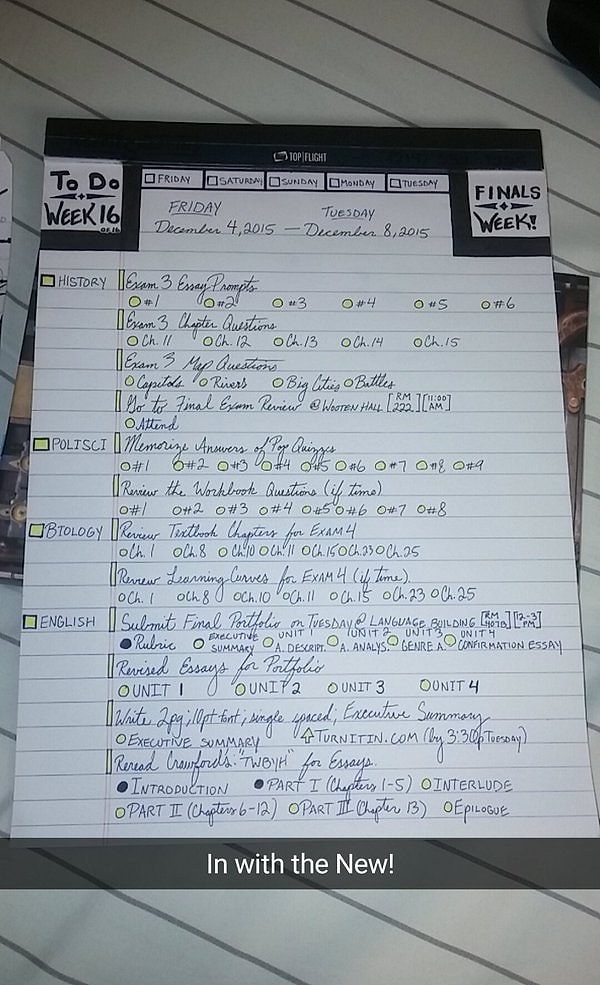 TOP|FLIGHT
To Do
WEEK 16
OF 16
FRIDAY SATURDAY SUNDAY MONDAY TUESDAY
FINALS
WEEK!
FRIDAY TUESDAY
December 4, 2015 — December 8, 2015
HISTORY Exam 3 Essay Prompts
#1 #2 #3 #4 #5 #6
Exam 3 Chapter Questions
Ch. 11 Ch. 12 Ch. 13 Ch. 14 Ch. 15
Exam 3 Map Questions
Capitols Rivers Big Cities Battles
Go to Final Exam Review @ WOOTEN HALL [RM 222] [11:00 AM]
Attend
POLISCI Memorize Answers of Pop Quizzes
#1 #2 #3 #4 #5 #6 #7 #8 #9
Review the Workbook Questions (if time)
#1 #2 #3 #4 #5 #6 #7 #8
BIOLOGY Review Textbook Chapters for EXAM 4
Ch. 1 Ch. 8 Ch. 10 Ch. 11 Ch. 15 Ch. 23 Ch. 25
Review Learning Curves for EXAM 4 (if time).
Ch. 1 Ch. 8 Ch. 10 Ch. 11 Ch. 15 Ch. 23 Ch. 25
ENGLISH Submit Final Portfolio on TUESDAY @ LANGUAGE BUILDING [RM 407B] [2-3 PM]
Rubric EXECUTIVE SUMMARY UNIT 1 A. DESCRIPT. UNIT 2 A. ANALYS. UNIT 3 GENRE A. UNIT 4 CONFIRMATION ESSAY
Revised Essays for Portfolio
UNIT 1 UNIT 2 UNIT 3 UNIT 4
Write 2pg; 10pt font; single spaced; Executive Summary
EXECUTIVE SUMMARY TURNITIN.COM (by 3:30p TUESDAY)
Reread Crawford's: "TWBYH" for Essays.
INTRODUCTION PART I (Chapters 1-5) INTERLUDE
PART II (Chapters 6-12) PART III (Chapter 13) EPILOGUE
In with the New!